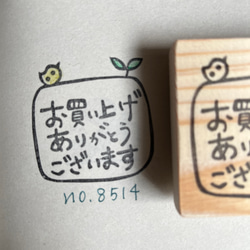 お買い上げ
ありがとう
ございます
no.8514
お買い
ありが
ござい